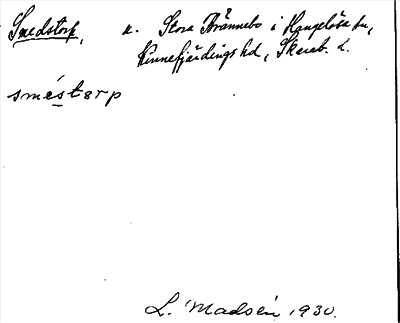 Smedstorp, u. Stora Brännebo i Hangelösa sn,
Kinnefjärdings hd, Skarab. l.
sméstɑrp
L. Madsén 1930.